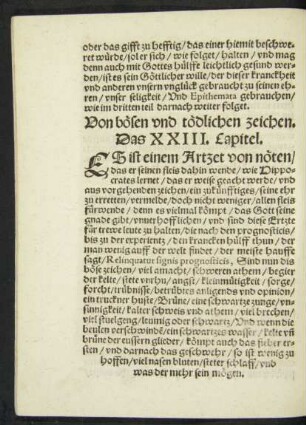 oder das gifft zu hefftig / das einer hiemit beschwe-
ret würde / sol er sich / wie folget / halten / vnd mag
denn auch mit Gottes hülffe leichtlich gesund wer-
den / ist es sein Göttlicher wille / der dieser kranckheit
vnd anderen vnsern vnglück gebraucht zu seinen eh-
ren / vnser seligkeit / Vnd Epithemata gebrauchen /
wie im dritten teil darnach weiter folget.
Von bösen vnd tödlichen zeichen.
Das XXIII. Capitel.
ES ist einem Artzet von nöten /
das er seinen fleis dahin wende / wie Hippo-
crates lernet / das er weise geacht werde / vnd
aus vorgehenden zeichen ein zukünfftiges / seine ehr
zu erretten / vermelde / doch nicht weniger / allen fleis
fürwende / denn es vielmal kömpt / das Gott seine
gnade gibt / vnuerhofflich / vnd sind diese Ertzte
für trewe leute zu halten / die nach den prognosticis /
bis zu der experientz / den krancken hülff thun / der
man wenig auff der welt findet / der meiste hauffe
sagt / Relinquatur signis prognosticis, Sind nun dis
böse zeichen / viel amacht / schweren athem / begier
der kelte / stete vnrhu / angst / kleinmütigkeit / sorge /
forcht / trübnisse / betrübtes anligends vnd opinion /
ein truckner huste / Brüne / eine schwartze zunge / vn-
sinnigkeit / kalter schweis vnd athem / viel brechen /
viel stuelgeng / schwartz / Vnd wenn die
beulen verschwinden / ein schwartzes wasser / kelte vnd
brüne der eussern glieder / kömpt auch das fieber er-
sten / vnd darnach das geschwehr / so ist wenig zu
hoffen / viel nasen bluten / steter schlaff / vnd
was der mehr sein mögen.